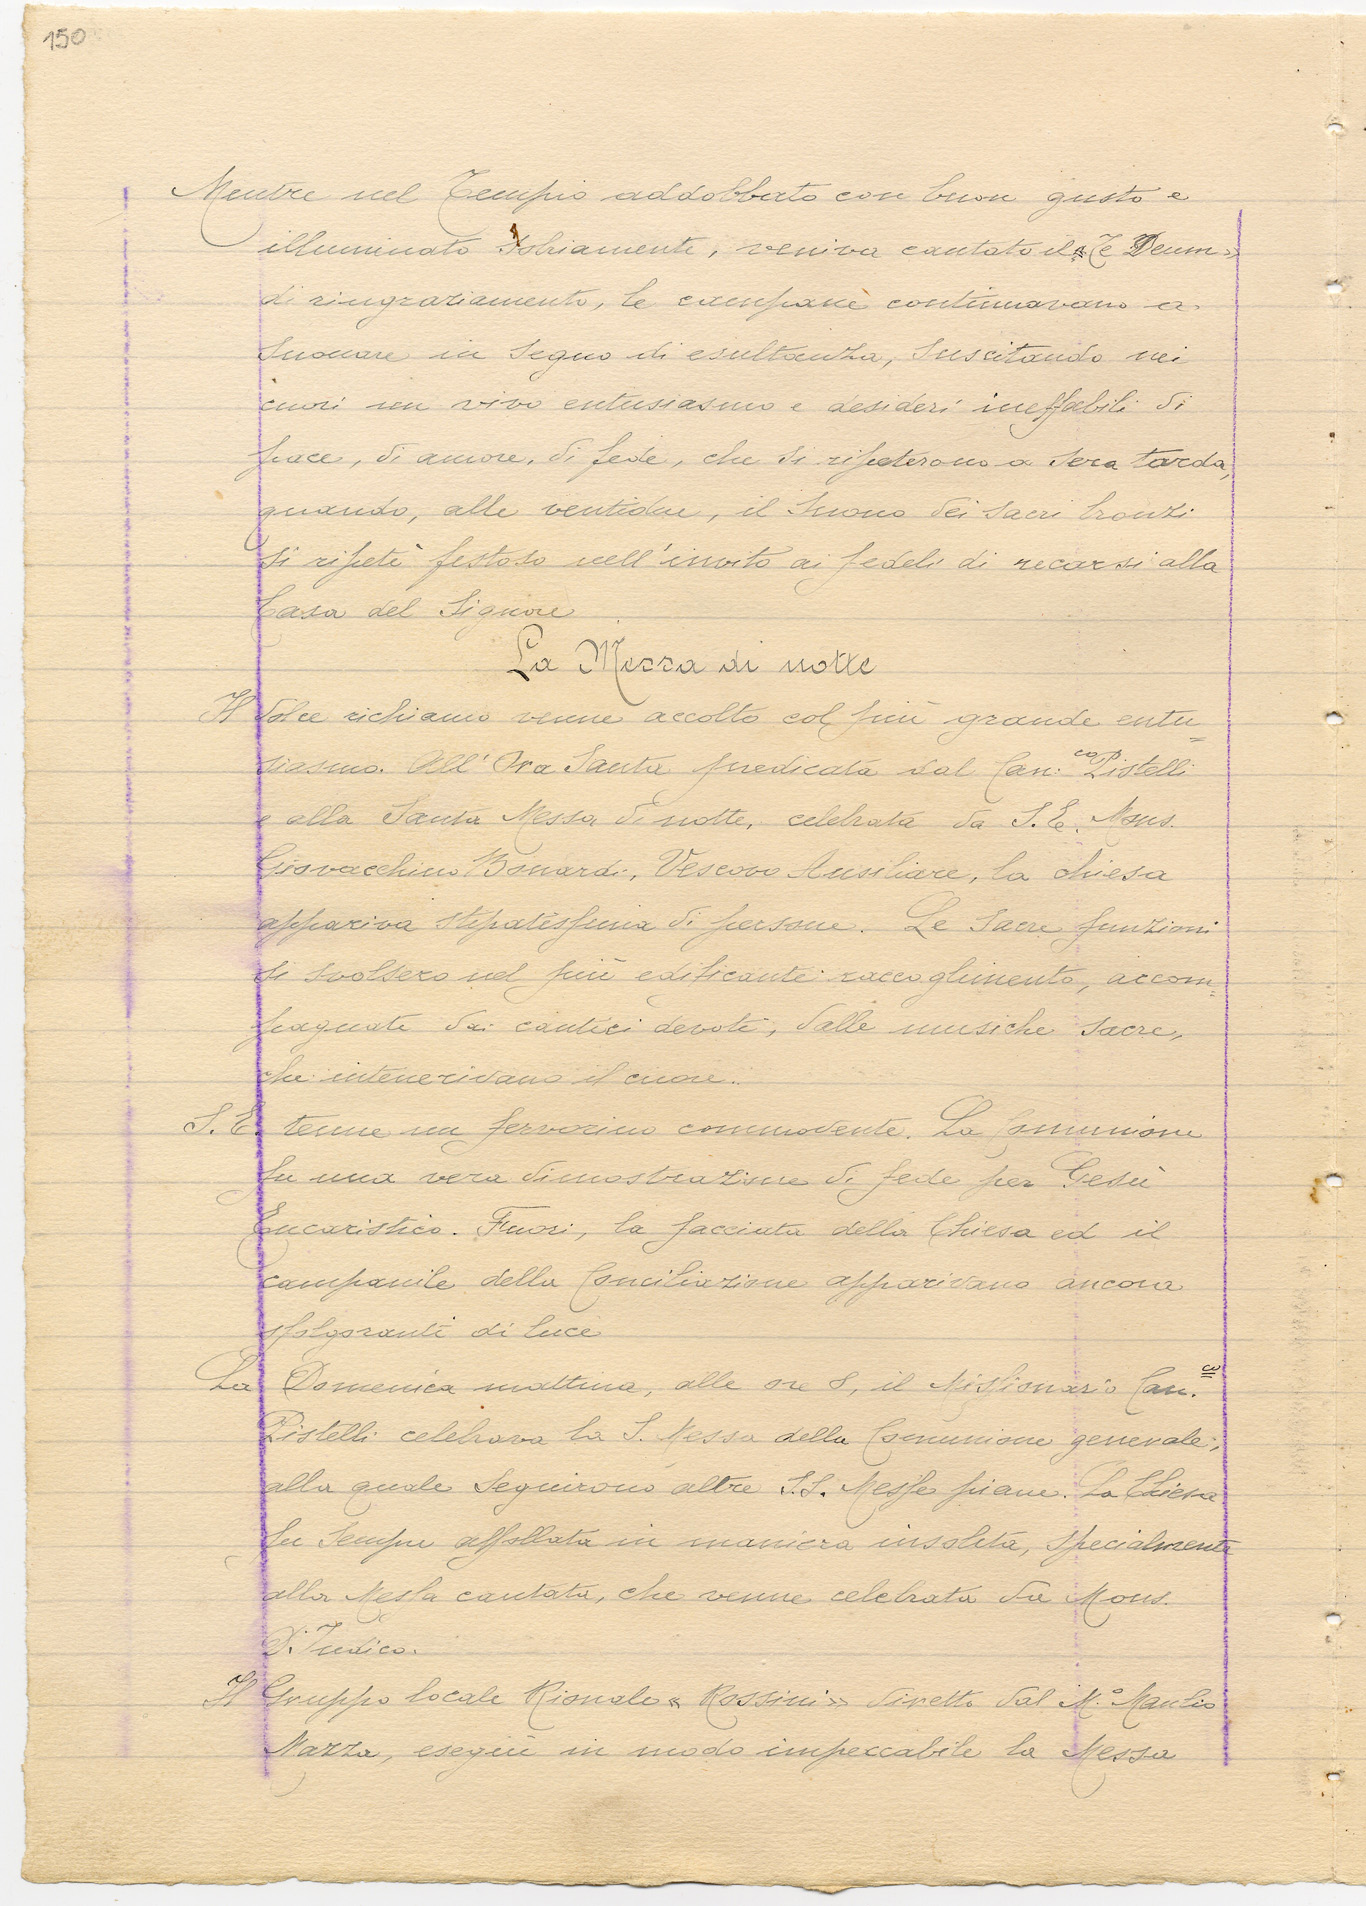 150
Mentre nel Tempio addobbato con buon gusto e
illuminato sobriamente, veniva cantato il «Te Deum»
di ringraziamento, le campane continuavano a
suonare in segno di esultanza, suscitando nei
cuori un vivo entusiasmo e desideri ineffabili di
pace, di amore, di fede, che si ripeterono a sera tarda,
quando, alle ventidue, il suono dei sacri bronzi
si ripetè festoso nell'invito ai fedeli di recarsi alla
Casa del Signore
La Messa di notte
Il dolce richiamo venne accolto col più grande entu=
siasmo. All'Ora Santa predicata dal Can.co Pistelli
e alla Santa Messa di notte, celebrata da S.E. Mons.
Giovacchino Bonardi, Vescovo Ausiliare, la chiesa
appariva stipatissima di persone. Le Sacre funzioni
si svolsero nel più edificante raccoglimento, accom=
pagnate dai cantici devoti, dalle musiche sacre,
che intenerivano il cuore.
S.E. tenne un fervorino commovente. La Comunione
fu una vera dimostrazione di fede per Gesù
Eucaristico. Fuori, la facciata della Chiesa ed il
campanile della Conciliazione apparivano ancora
sfolgoranti di luce
La Domenica mattina, alle ore 8, il Missionario Can.co
Pistelli celebrava la S. Messa della Comunione generale,
alla quale seguirono altre S.S. Messe piane. La Chiesa
fu sempre affollata in maniera insolita, specialmente
alla Messa cantata, che venne celebrata da Mons.
D'Indico.
Il Gruppo locale Rionale «Rossini» diretto dal M.o Manlio
Mazza, eseguì in modo impeccabile la Messa